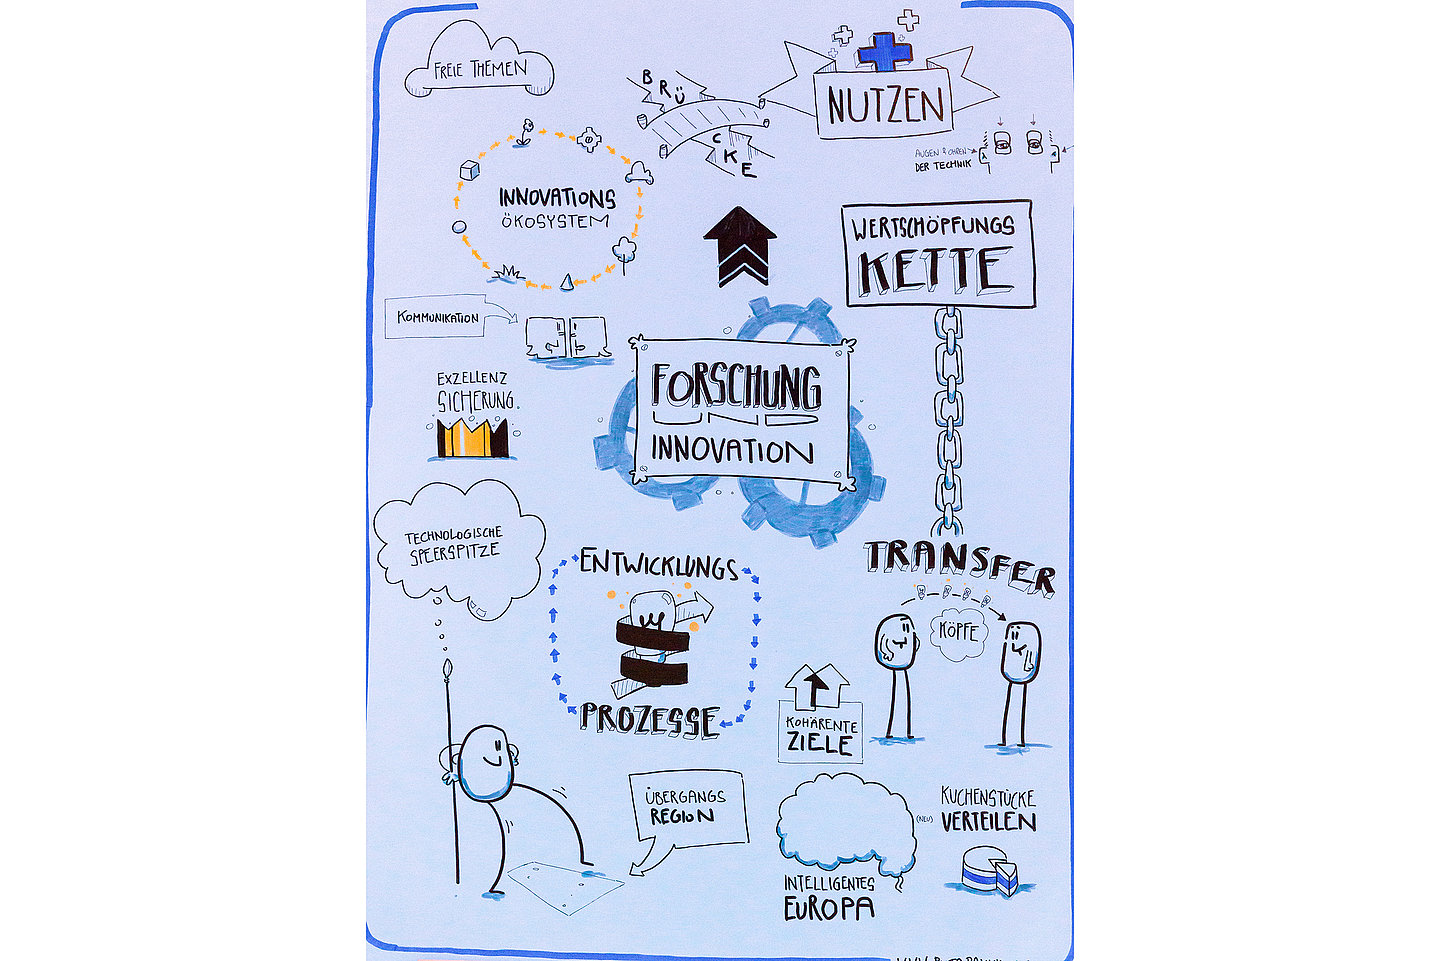 FREIE THEMEN
BRÜ
CKE
NUTZEN
AUGEN & OHREN
DER TECHNIK
INNOVATIONS
ÖKOSYSTEM
WERTSCHÖPFUNGS
KETTE
KOMMUNIKATION
EXZELLENZ
SICHERUNG
FORSCHUNG
UND
INNOVATION
TECHNOLOGISCHE
SPEERSPITZE
ENTWICKLUNGS
PROZESSE
TRANSFER
KÖPFE
KOHÄRENTE
ZIELE
ÜBERGANGS
REGION
INTELLIGENTES
EUROPA
KUCHENSTÜCKE
(NEU) VERTEILEN